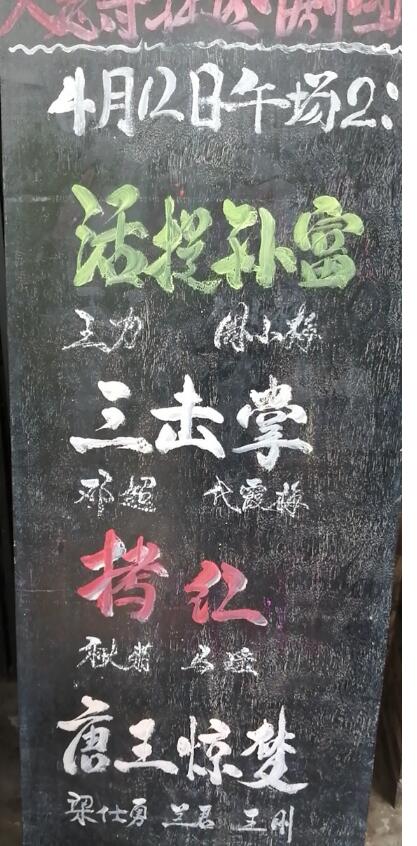 4月12日午场2:
活捉孙富
王力 周小梅
三击掌
邓超 代霞梅
拷红
秋菊
唐王惊梦
梁仕勇 兰君 王刚